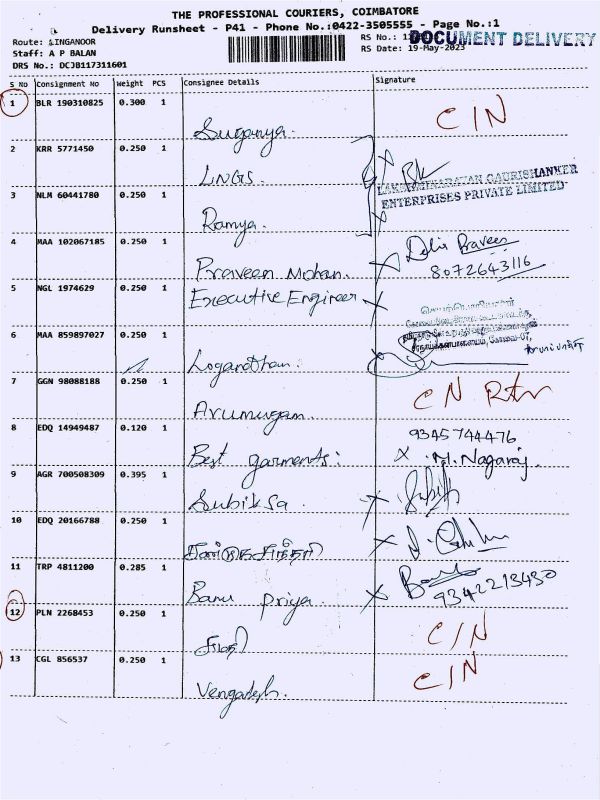 THE PROFESSIONAL COURIERS, COIMBATORE
Delivery Runsheet - P41 - Phone No.:0422-3505555 - Page No.:1
Route: LINGANOOR
RS No.:
DOCUMENT DELIVERY
Staff: A P BALAN
RS Date: 19-May-2023
DRS No.: DCJB117311601
S No Consignment No Weight PCS Consignee Details Signature
1 BLR 190310825 0.300 1 Suganya. C/N
2 KRR 5771450 0.250 1 LNGS.
LAKSHMINARAYAN GAURISHANKER
ENTERPRISES PRIVATE LIMITED
3 NLM 60441780 0.250 1 Ramya.
4 MAA 102067185 0.250 1 Praveen Mohan. Praveen
8072643116
5 NGL 1974629 0.250 1 Executive Engineer
6 MAA 859897027 0.250 1 Loganathan.
7 GGN 98088188 0.250 1 Arumugam. CN Rtn
8 EDQ 14949487 0.120 1 Best garments: 9345744476
x M. Nagaraj.
9 AGR 700508309 0.395 1 Subiksa.
10 EDQ 20166788 0.250 1
11 TRP 4811200 0.285 1 Banu Priya 9342213430
12 PLN 2268453 0.250 1 C/N
13 CGL 856537 0.250 1 Vengatesh. C/N